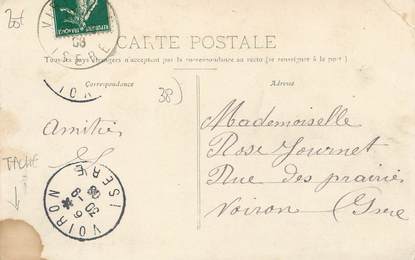 CARTE POSTALE
Tous les pays étrangers n'acceptent pas la correspondance au recto (se renseigner à la poste)
Correspondance
Adresse
38)
Amitiés
Mademoiselle
Rose Journet
Rue des prairies
Voiron Isere
TACHE
VOIRON
ISERE
ISERE